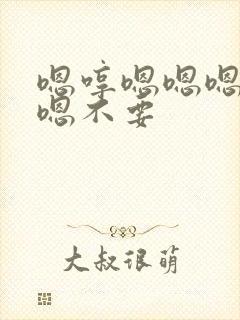 嗯哼嗯嗯嗯
嗯不要
大叔很萌